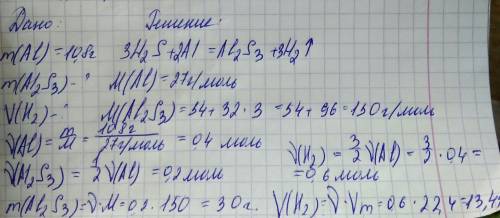 Дано: Решение:
m(Al)=10,8г 3H₂S+2Al=Al₂S₃+3H₂↑
m(Al₂S₃)-" M(Al)=27г/моль
V(H₂)-" M(Al₂S₃)=54+32·3=54+96=150г/моль
ν(Al)=m/M=10,8г/27г/моль=0,4 моль ν(H₂)=3/2ν(Al)=3/2·0,4=
ν(Al₂S₃)=1/2ν(Al)=0,2моль =0,6моль
m(Al₂S₃)=ν·M=0,2·150=30г. V(H₂)=ν·Vm=0,6·22,4=13,44